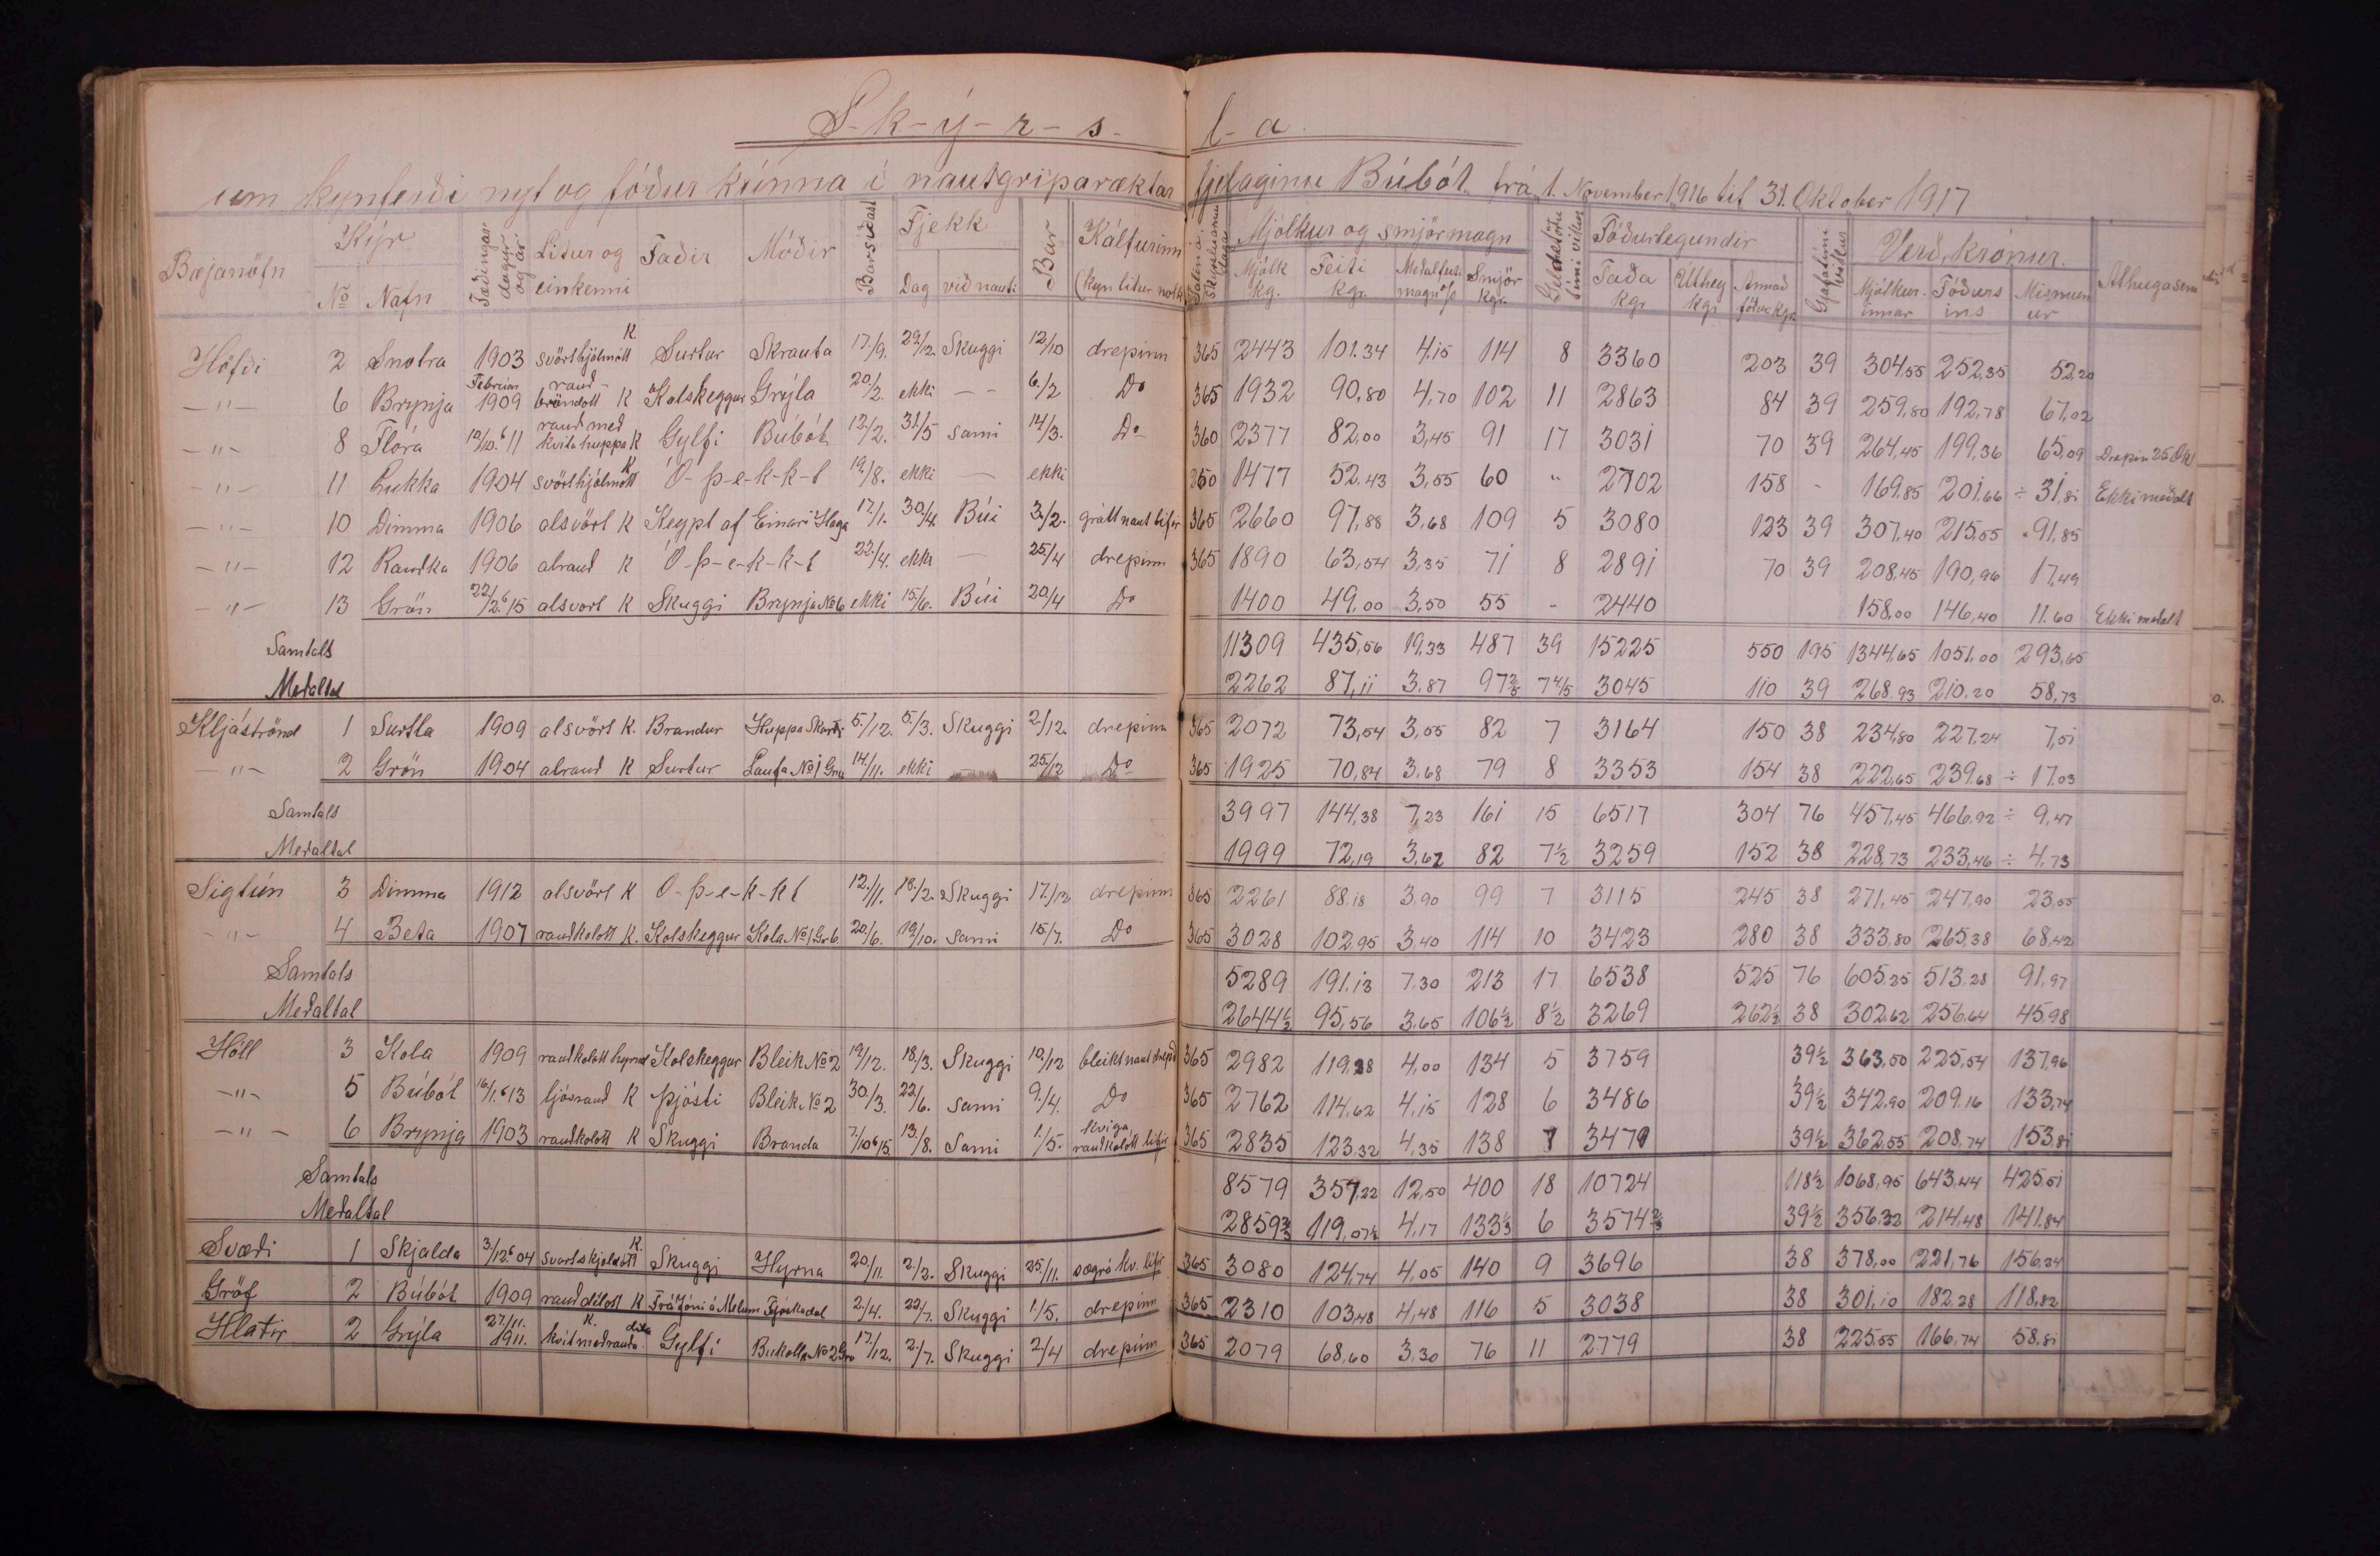 S-k-ý-r-s-l-a.
um kynferði nyt og fóður kúnna í nautgriparæktarfjelaginu Búbót frá 1. November 1916 til 31. Oktober 1917
Bæjanöfn Kýr Fæðingardagur og ár Litur og einkenni Faðir Móðir Bar síðast Fjekk Bar Kálfurinn Mjólkur og smjörmagn Geldstöðutími vikur Fóðurtegundir Gjafatími vikur Verð, krónur. Athugasem
No Nafn Dag við nauti (kyn litur notk Mjólk kg. Feiti kgr. Meðalfitumagn % Smjör kgr. Taða kgr Úthey kgr Annað fóður kgr. Mjólkurinnar Fóðursins Mismunur
Höfði 2 Snotra 1903 svörthjálmótt K. Surtur Skrauta 17./9. 29/12. Skuggi 12/10 drepinn 365 2443 101.34 4.15 114 8 3360 203 39 304,55 252,35 52,20
-"- 6 Brynja Febrúar 1909 rauð-bröndott K Kolskeggur Grýla 20./2. ekki - - 6./2 Do 365 1932 90,80 4,70 102 11 2863 84 39 259,80 192,78 67,02
-"- 8 Flóra 12/12.6 11 rauð með hvita huppa K Gylfi Búbót 12./2. 31./5 sami 14/3. Do 360 2377 82,00 3,45 91 17 3031 70 39 264,45 199,36 65,09 Drepin 25. Okt
-"- 11 Lukka 1904 svörthjálmótt K Ó-þ-e-k-k-t 19./8. ekki — ekki 250 1477 52,43 3,55 60 " 2702 158 - 169,85 201,66 ÷ 31,81 Ekki meðalt
-"- 10 Dimma 1906 alsvört K Keypt af Einari Haga 17./1. 30/4. Búi 3./2. grátt naut lifir 365 2660 97,88 3,68 109 5 3080 123 39 307,40 215,55 91,85
-"- 12 Rauðka 1906 alrauð K Ó-þ-e-k-k-t 22./4. ekki — 25/4 drepinn 365 1890 63,54 3,35 71 8 2891 70 39 208,45 190,96 17,49
-"- 13 Grön 22/2.6 15 alsvört K Skuggi Brynja No 6 ekki 15/6. Búi 20/4 Do 1400 49,00 3,50 55 - 2440 158,00 146,40 11.60 Ekki meðalt
Samtals 11309 435,56 19,33 487 39 15225 550 195 1344,65 1051,00 293,65
Meðaltal 2262 87,11 3,87 97 2/5 7 4/5 3045 110 39 268,93 210,20 58,73
Kljáströnd 1 Surtla 1909 alsvört K. Brandur Huppa Skarði 5./12. 5./3. Skuggi 2./12. drepinn 365 2072 73,54 3,55 82 7 3164 150 38 234,80 227,24 7,51
-"- 2 Grön 1904 alrauð K Surtur Laufa No 1 Gru 14/11. ekki — 25/12 Do 365 1925 70,84 3,68 79 8 3353 154 38 222,65 239,68 ÷ 17,03
Samtals 3997 144,38 7,23 161 15 6517 304 76 457,45 466,92 ÷ 9,47
Meðaltal 1999 72,19 3,62 82 7 1/2 3259 152 38 228,73 233,46 ÷ 4,73
Sigtún 3 Dimma 1912 alsvört K Ó-þ-e-k-k-t 12./11. 18./2. Skuggi 17./12 drepinn 365 2261 88,18 3,90 99 7 3115 245 38 271,45 247,90 23,55
-"- 4 Beta 1907 rauðkolott K. Kolskeggur Kola No 1 Gr 6 20./6. 19/10. Sami 15/7. Do 365 3028 102,95 3,40 114 10 3423 280 38 333,80 265,38 68,42
Samtals 5289 191,13 7,30 213 17 6538 525 76 605,25 513,28 91,97
Meðaltal 2644 1/2 95,56 3,65 106 1/2 8 1/2 3269 262 1/2 38 302,62 256,64 45,98
Höll 3 Kola 1909 rauðkolott hyrnd Kolskeggur Bleik No 2 19/12. 18./3. Skuggi 10./12 bleikt naut drepið 365 2982 119,28 4,00 134 5 3759 39 1/2 363,50 225,54 137,96
-"- 5 Búbót 16/1.6 13 ljósrauð K Þjósti Bleik No 2 30./3. 22/6. Sami 9./4. Do 365 2762 114,62 4,15 128 6 3486 39 1/2 342,90 209,16 133,74
-"- 6 Brynja 1903 rauðkolott K Skuggi Branda 7/10 6 15. 13./8. Sami 1./5. kviga, rauðkolott lifir 365 2835 123,32 4,35 138 7 3479 39 1/2 362,55 208,74 153,81
Samtals 8579 357,22 12,50 400 18 10724 118 1/2 1068,95 643,44 425,51
Meðaltal 2859 2/3 119,07 1/2 4,17 133 1/3 6 3574 2/3 39 1/2 356,32 214,48 141,84
Svæði 1 Skjalda 3/12.6 04 svartskjoldótt K. Skuggi Hyrna 20/11. 2./2. Skuggi 25/11. sægrá kv. lifir 365 3080 124,74 4,05 140 9 3696 38 378,00 221,76 156,24
Gröf 2 Búbót 1909 rauðdílott K Frá Jóni á Melum Fjóskadal 2./4. 22/7. Skuggi 1./5. drepinn 365 2310 103,48 4,48 116 5 3038 38 301,10 182,28 118,82
Hlaðir 2 Grýla 27/11. 1911. K. hvít með rauða díla Gylfi Bukolla No 2 Gru 17./12. 2./7. Skuggi 2/4 drepinn 365 2079 68,60 3,30 76 11 2779 38 225,55 166,74 58,81